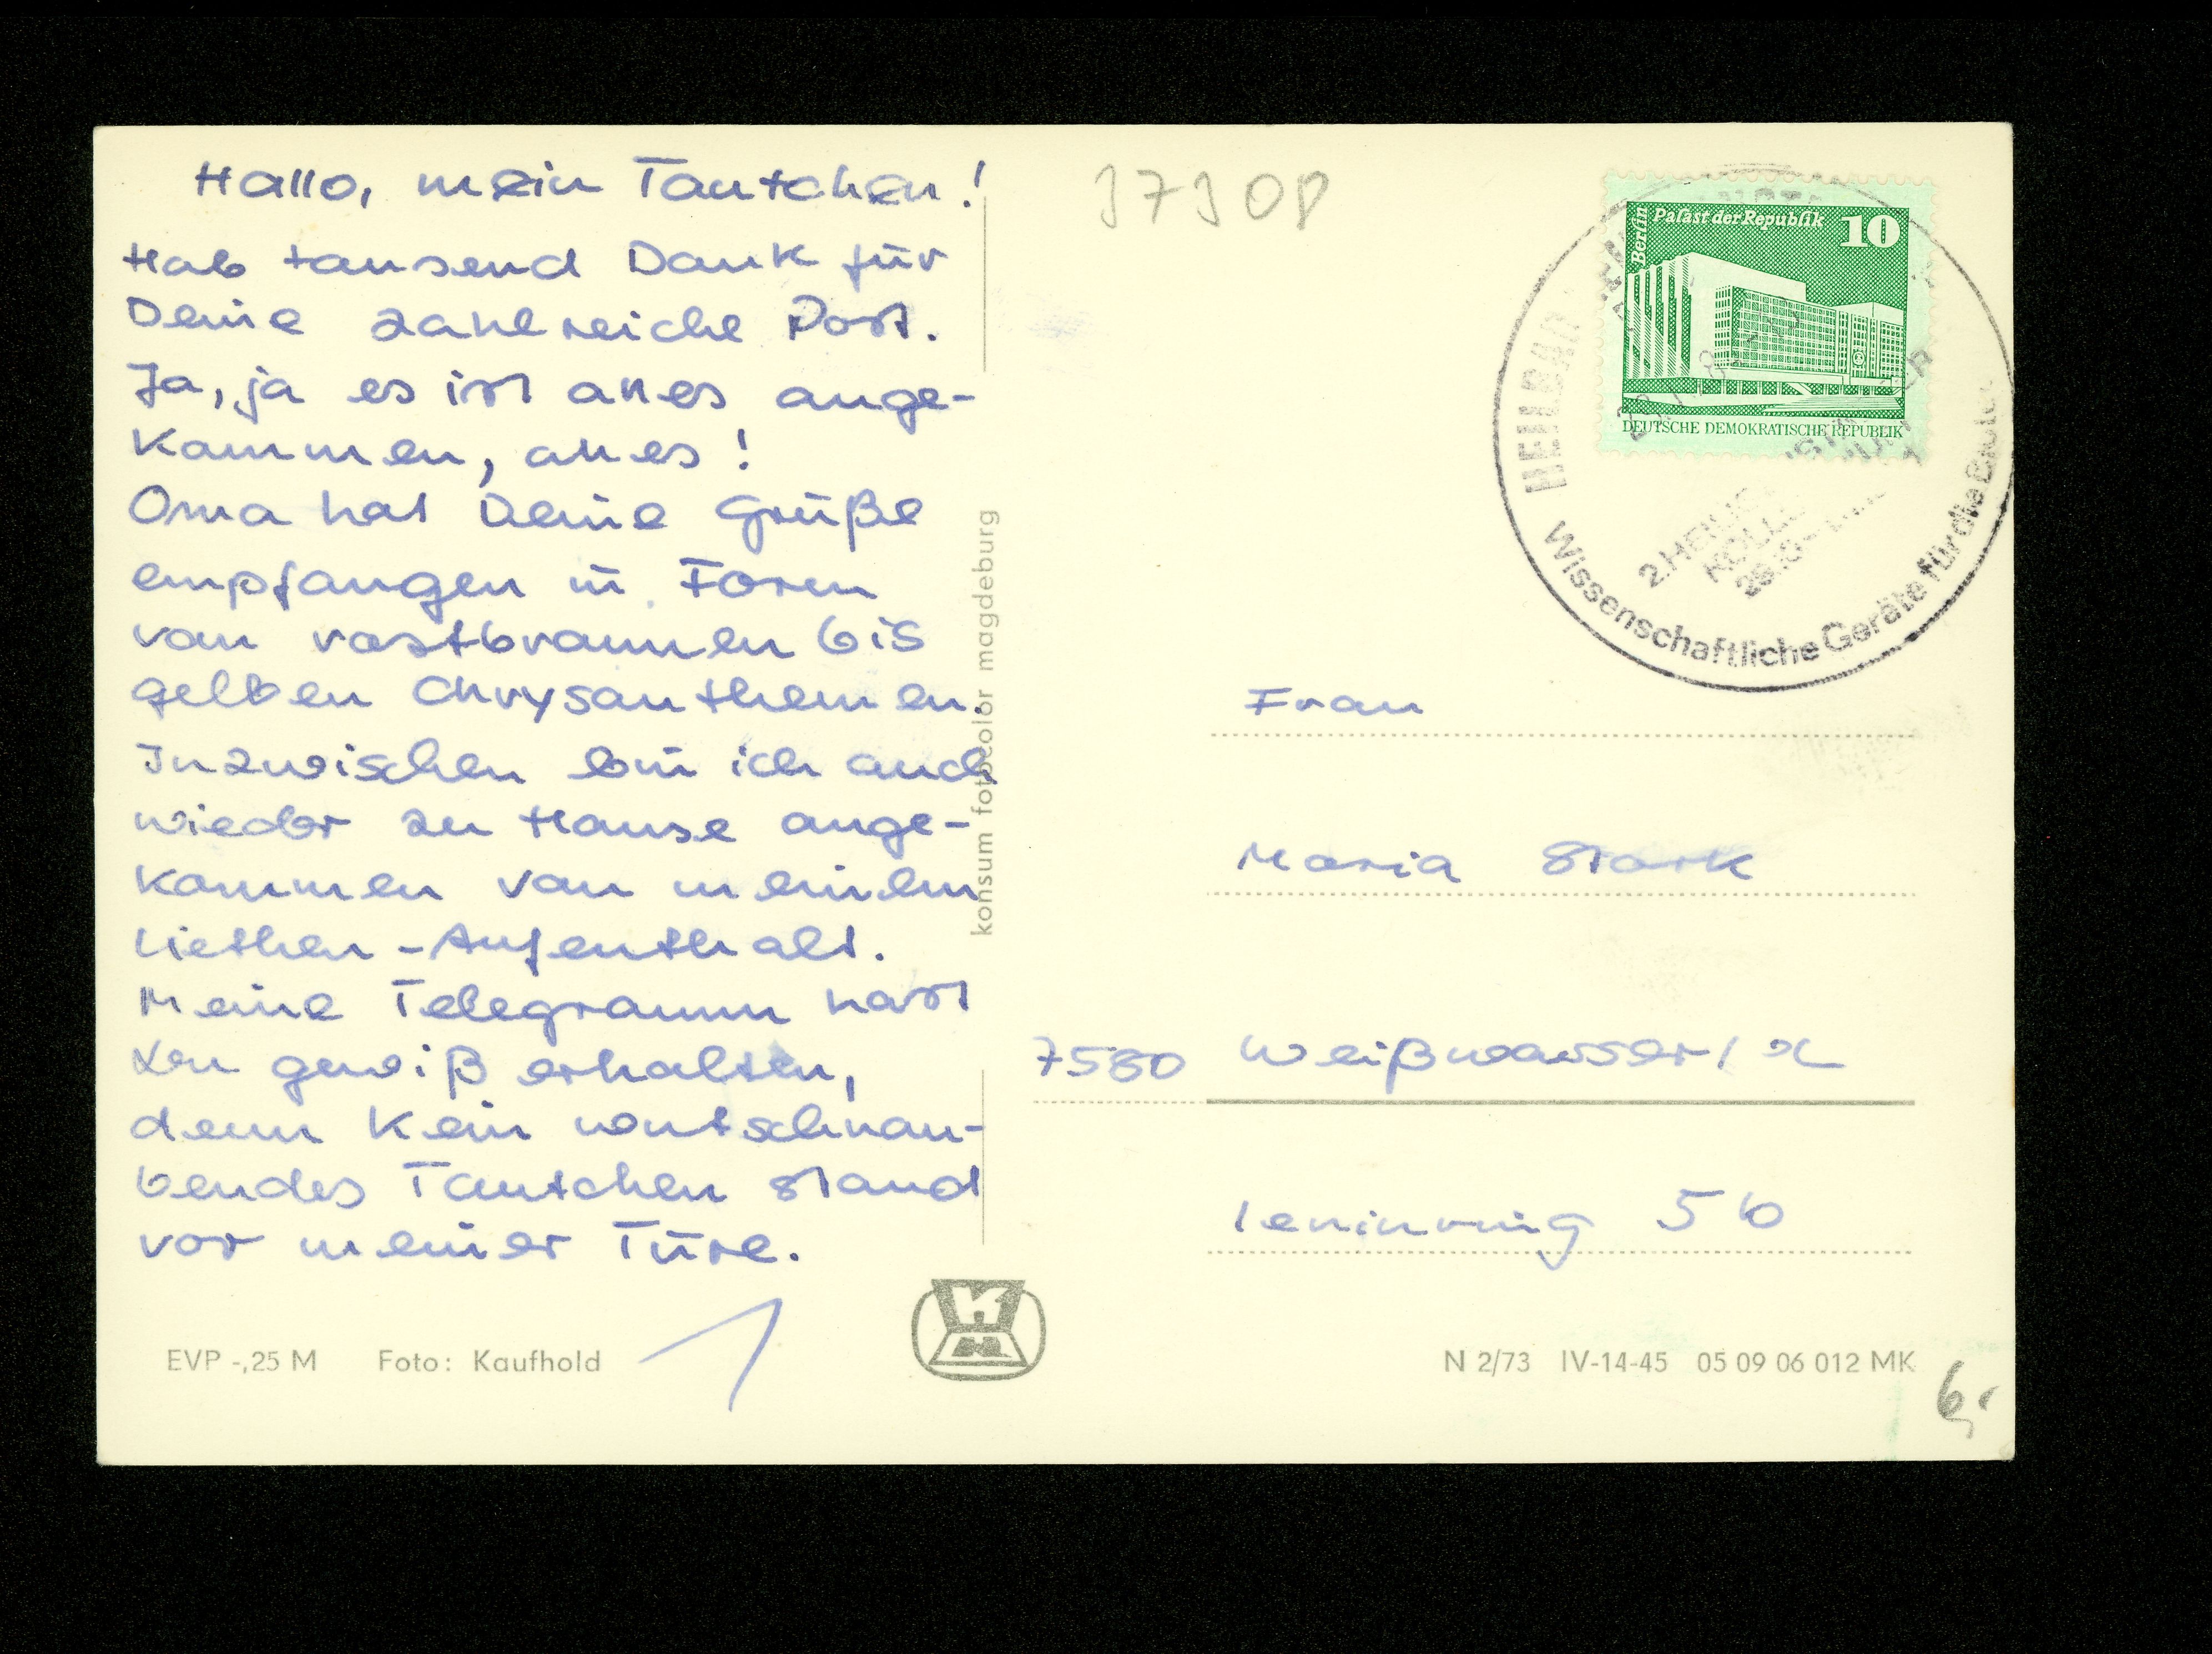 Hallo, mein Tantchen!
Hab tausend Dank für
Deine zahlreiche Post.
Ja, ja es ist alles ange-
kommen, alles!
Oma hat Deine Grüße
empfangen in Form
von rostbraunen bis
gelben Chrysanthemen.
Inzwischen bin ich auch
wieder zu Hause ange-
kommen von meinem
Liethen-Aufenthalt.
Meine Telegramm hast
Du gewiß erhalten,
denn kein wutschnau-
bendes Tantchen stand
vor meiner Türe.
EVP -,25 M Foto: Kaufhold
konsum fotocolor magdeburg
Berlin
Palast der Republik 10
DEUTSCHE DEMOKRATISCHE REPUBLIK
Wissenschaftliche Geräte für die
Frau
Maria Stark
7580 Weißwasser/
Leninring 56
N 2/73 IV-14-45 05 09 06 012 MK
6,